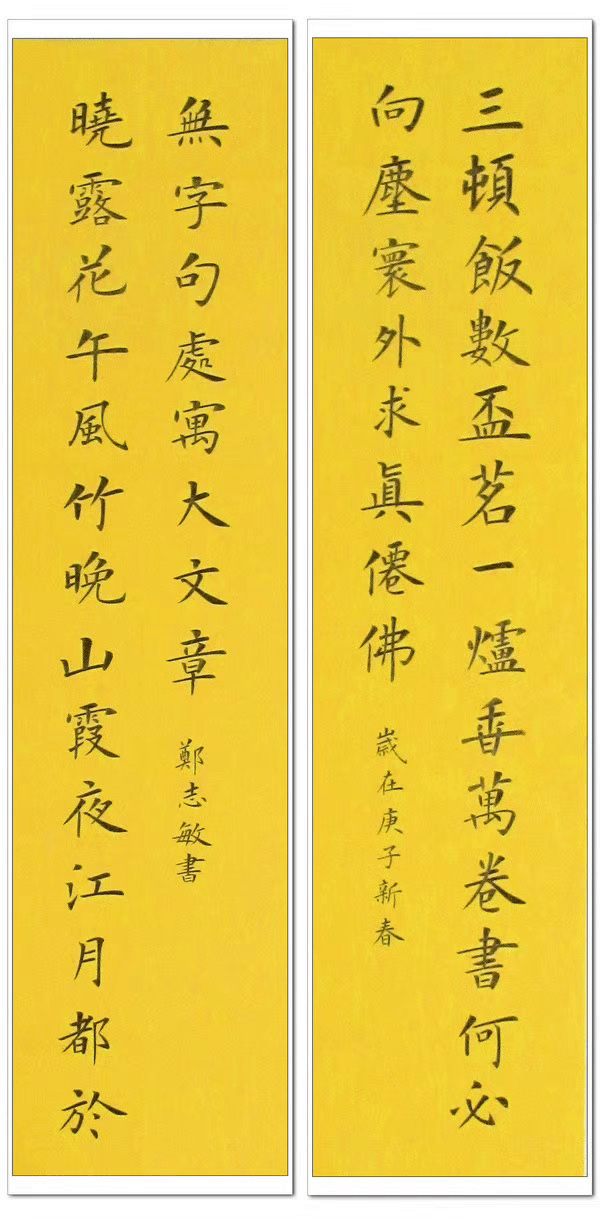 三頓飯數盃茗一爐香萬卷書何必
向塵寰外求眞僊佛
歲在庚子新春
曉露花午風竹晚山霞夜江月都於
無字句處寓大文章
鄭志敏書